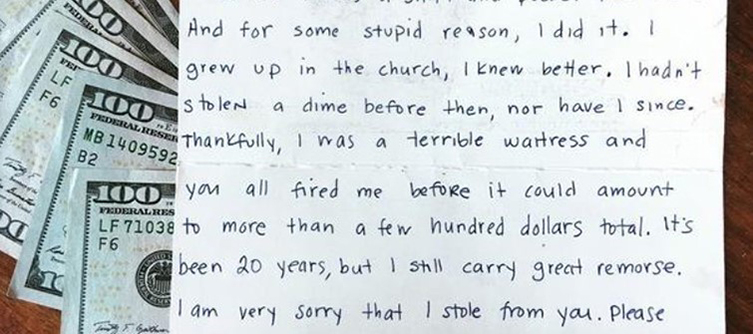 And for some stupid reason, I did it. I
grew up in the church, I knew better. I hadn't
stolen a dime before then, nor have I since.
Thankfully, I was a terrible waitress and
you all fired me before it could amount
to more than a few hundred dollars total. It's
been 20 years, but I still carry great remorse.
I am very sorry that I stole from you. Please
100
FEDERAL
100
LF
F6
100
FEDERAL RESER
MB1409592
B2
100
FEDERAL RES
LF71038
F6